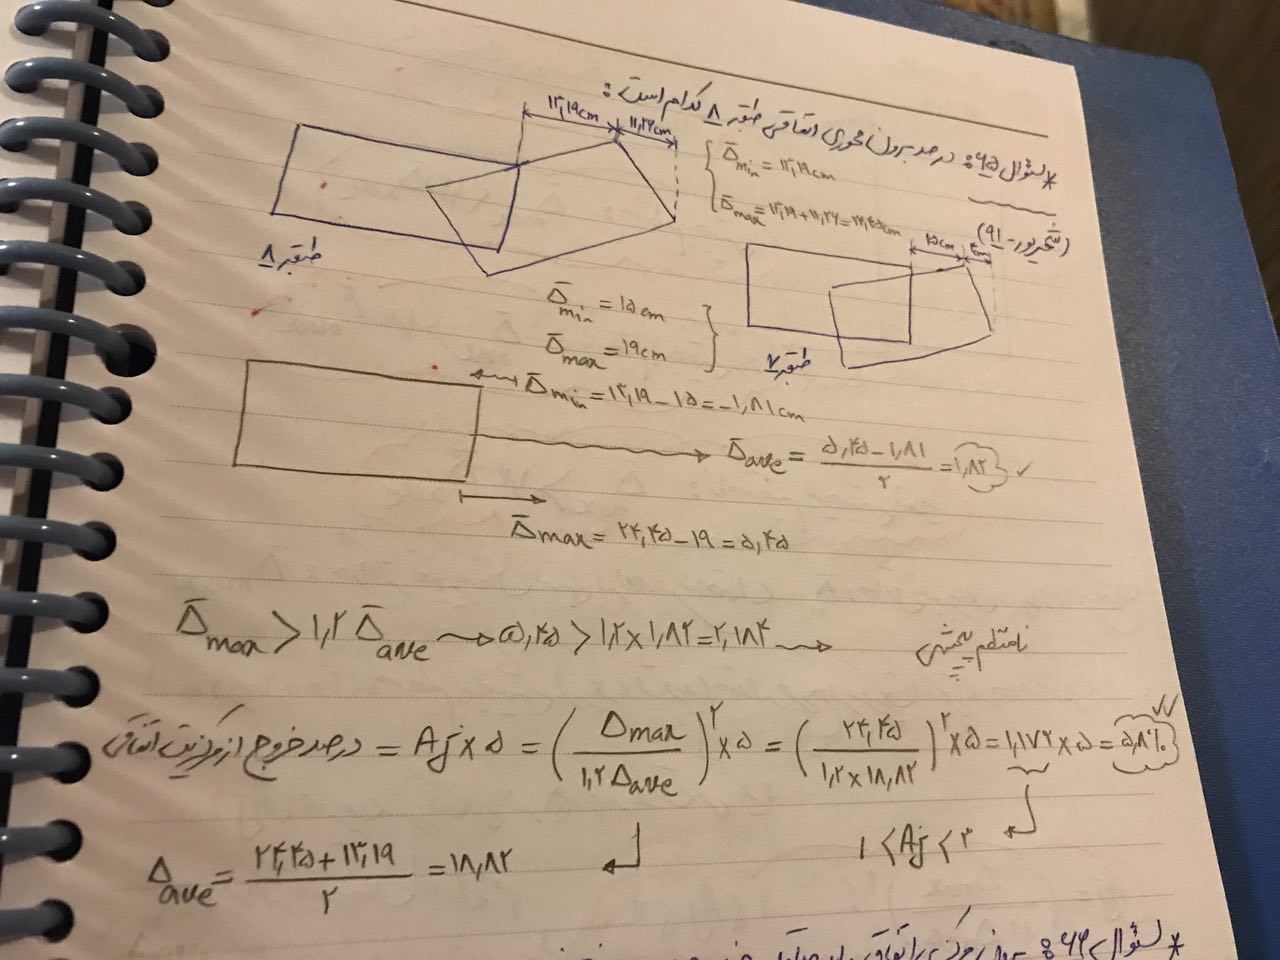 * سئوال ۶۵: درصد برون محوری اتفاقی طبقه ۸ کدام است:
(شهریور-۹۱)
۱۳,۱۹cm ۱۱,۲۶cm
Δ̄min = ۱۳,۱۹cm
Δ̄max = ۱۳,۱۹+۱۱,۲۶=۲۴,۴۵cm
طبقه ۸
۱۵cm ۴cm
طبقه ۷
Δ̄min = ۱۵cm
Δ̄max = ۱۹cm
Δ̄min = ۱۳,۱۹ - ۱۵ = -۱,۸۱cm
Δ̄ave = (۵,۴۵-۱,۸۱)/۲ = ۱,۸۲ ✓
Δ̄max = ۲۴,۴۵ - ۱۹ = ۵,۴۵
Δ̄max > ۱,۲ Δ̄ave → ۵,۴۵ > ۱,۲×۱,۸۲=۲,۱۸۴ → نامنظم پیچشی
درصد خروج از مرکزیت اتفاقی = Aj × ۵ = (Δmax/۱,۲Δave)^۲ × ۵ = (۲۴,۴۵/۱,۲×۱۸,۸۲)^۲ × ۵ = ۱,۱۷۲ × ۵ = ۵,۸٪ ✓✓
۱ < Aj < ۳
Δave = (۲۴,۴۵+۱۳,۱۹)/۲ = ۱۸,۸۲
* سئوال ۶۶: